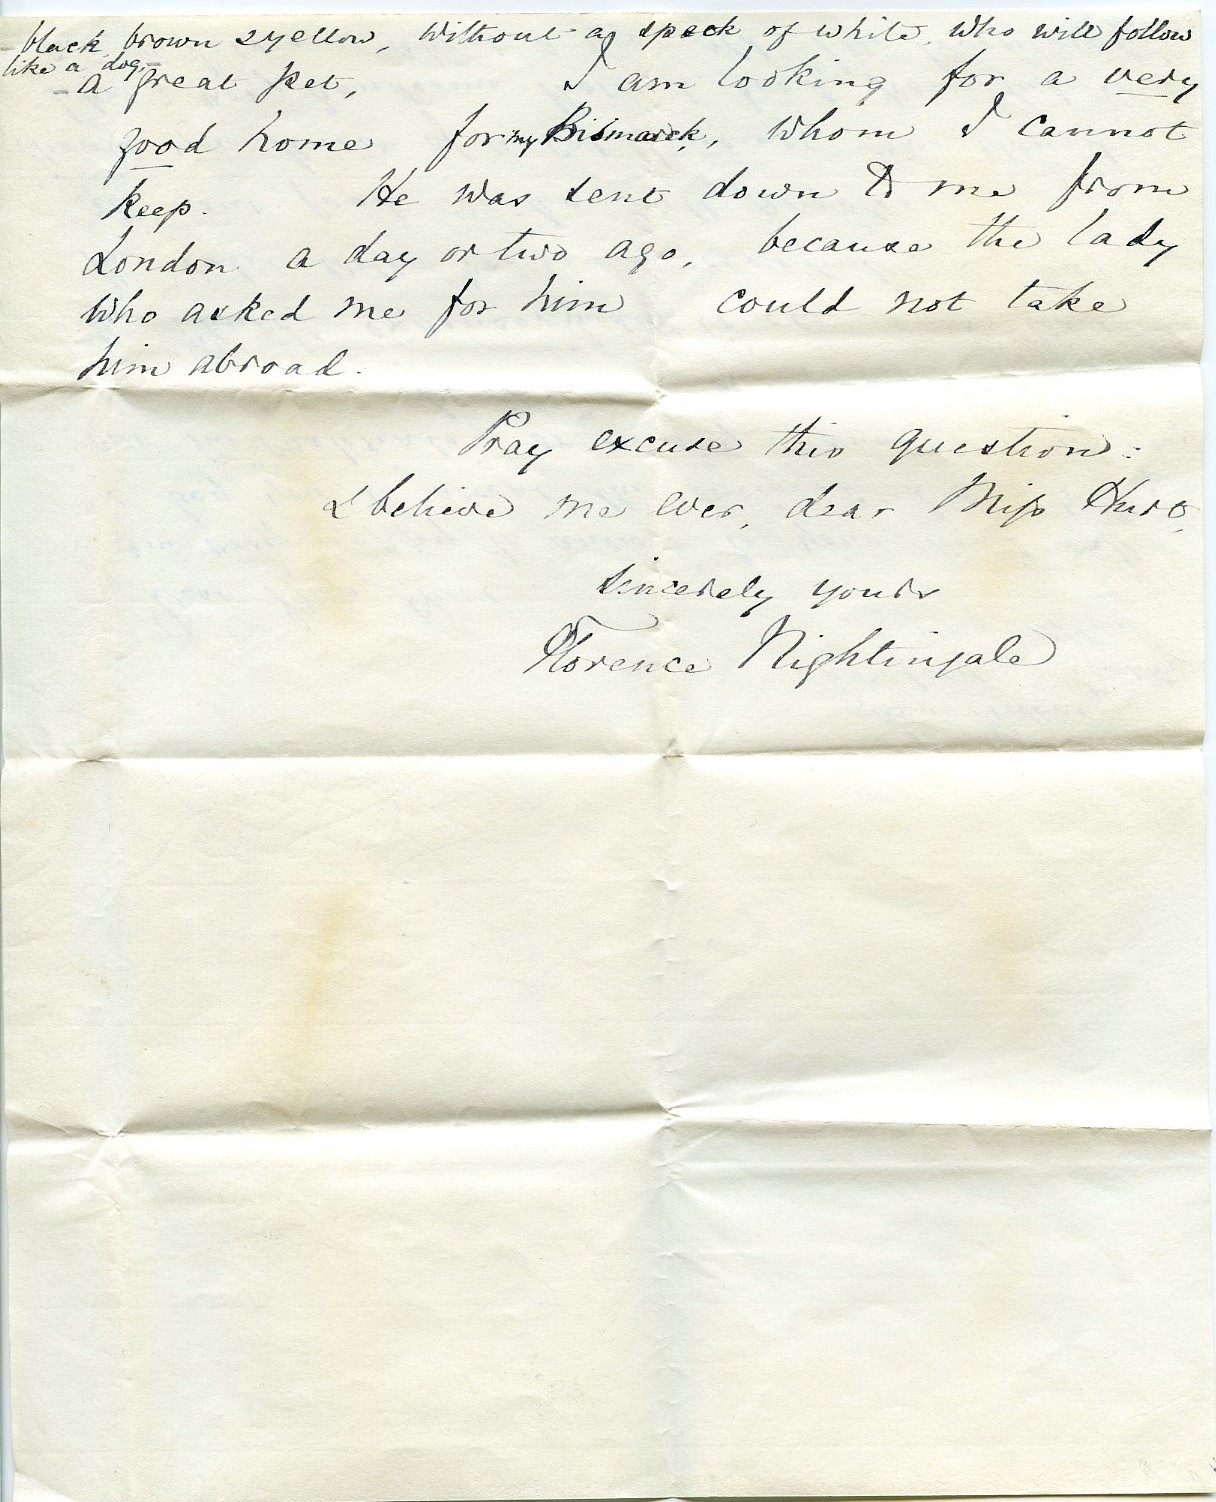 - black, brown & yellow, without a speck of white, who will follow
like a dog -
- a great pet, I am looking for a very
good home for my Bismarck, whom I cannot
keep. He was sent down to me from
London a day or two ago, because the lady
who asked me for him could not take
him abroad.
Pray excuse this question:
& believe me ever, dear Miss Hurt,
sincerely yours
Florence Nightingale